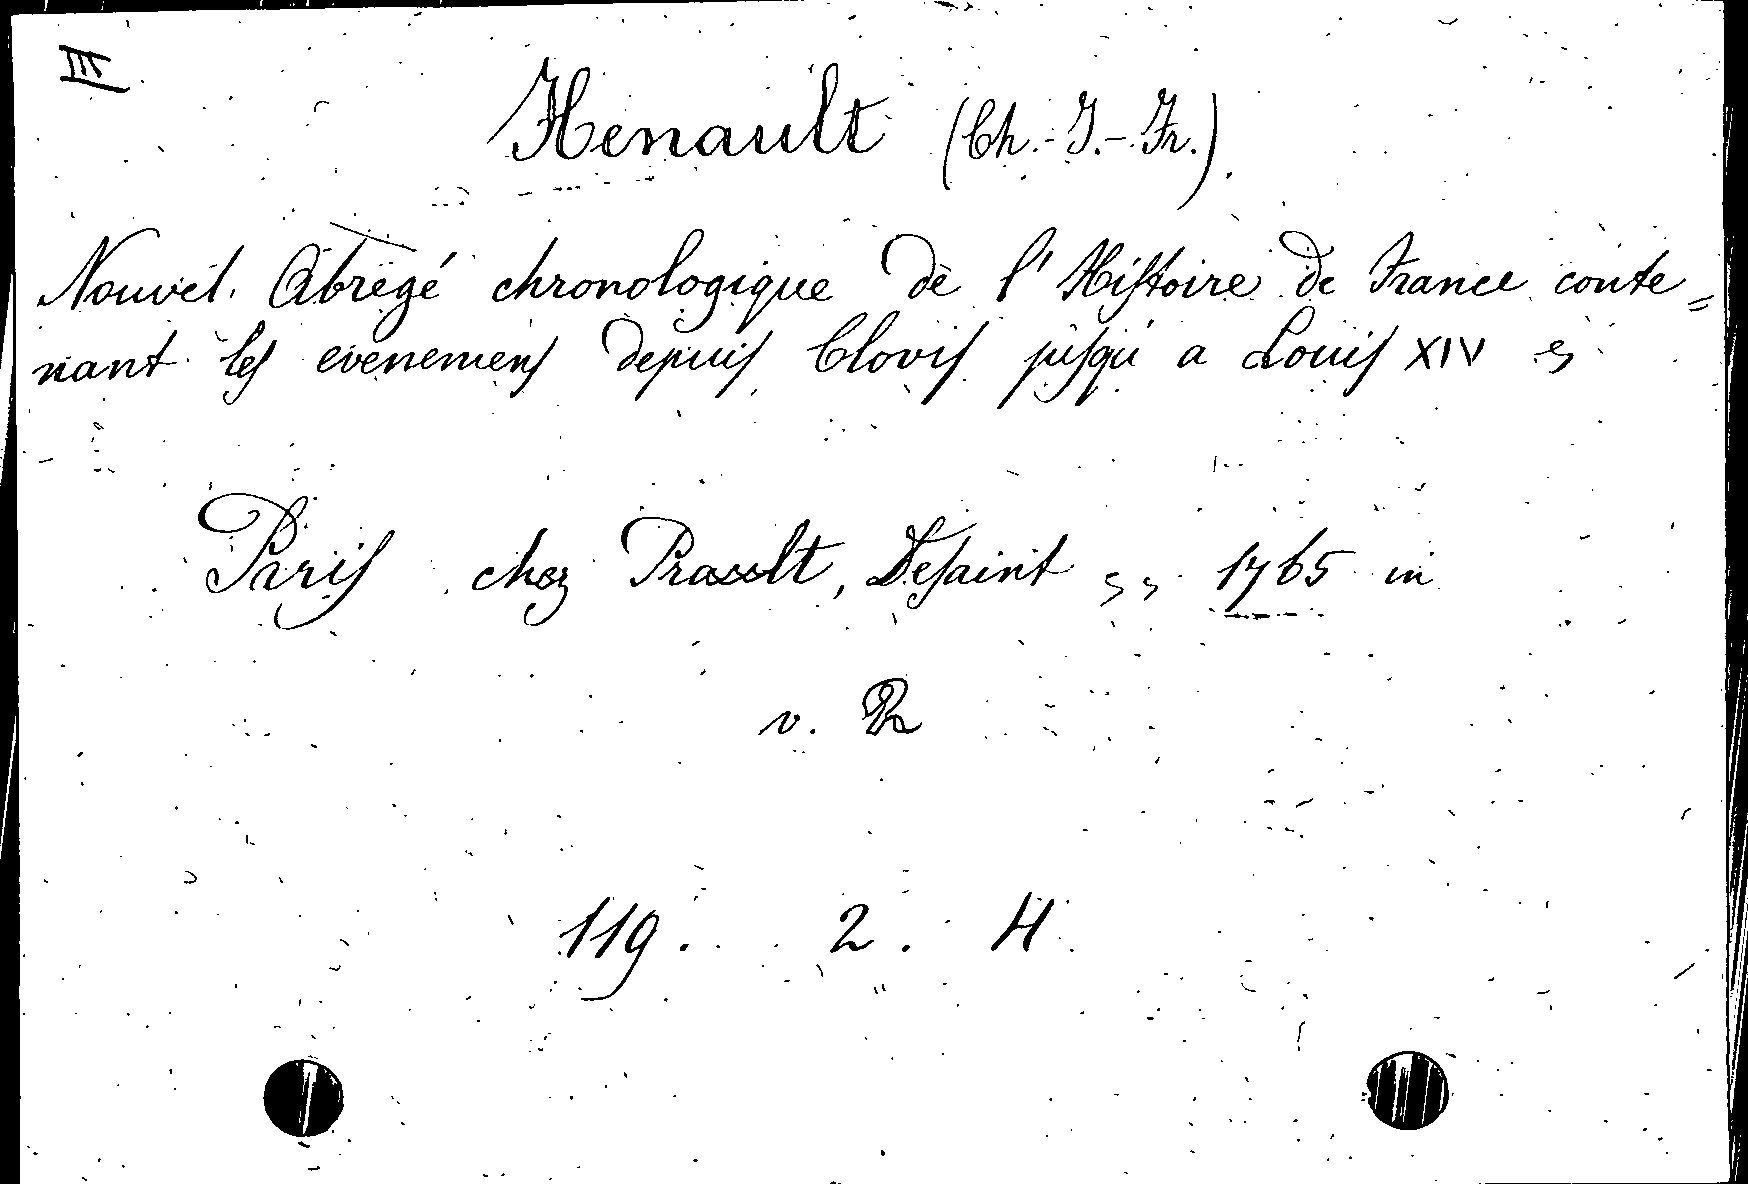 III
Henault (Ch.-J.-Fr.)
Nouvel. Abregé chronologique de l'Histoire de France conte=
nant les evenemens depuis Clovis jusqu' a Louis XIV
Paris chez Prault, Desaint 1765 in
v. R
119. 2. H